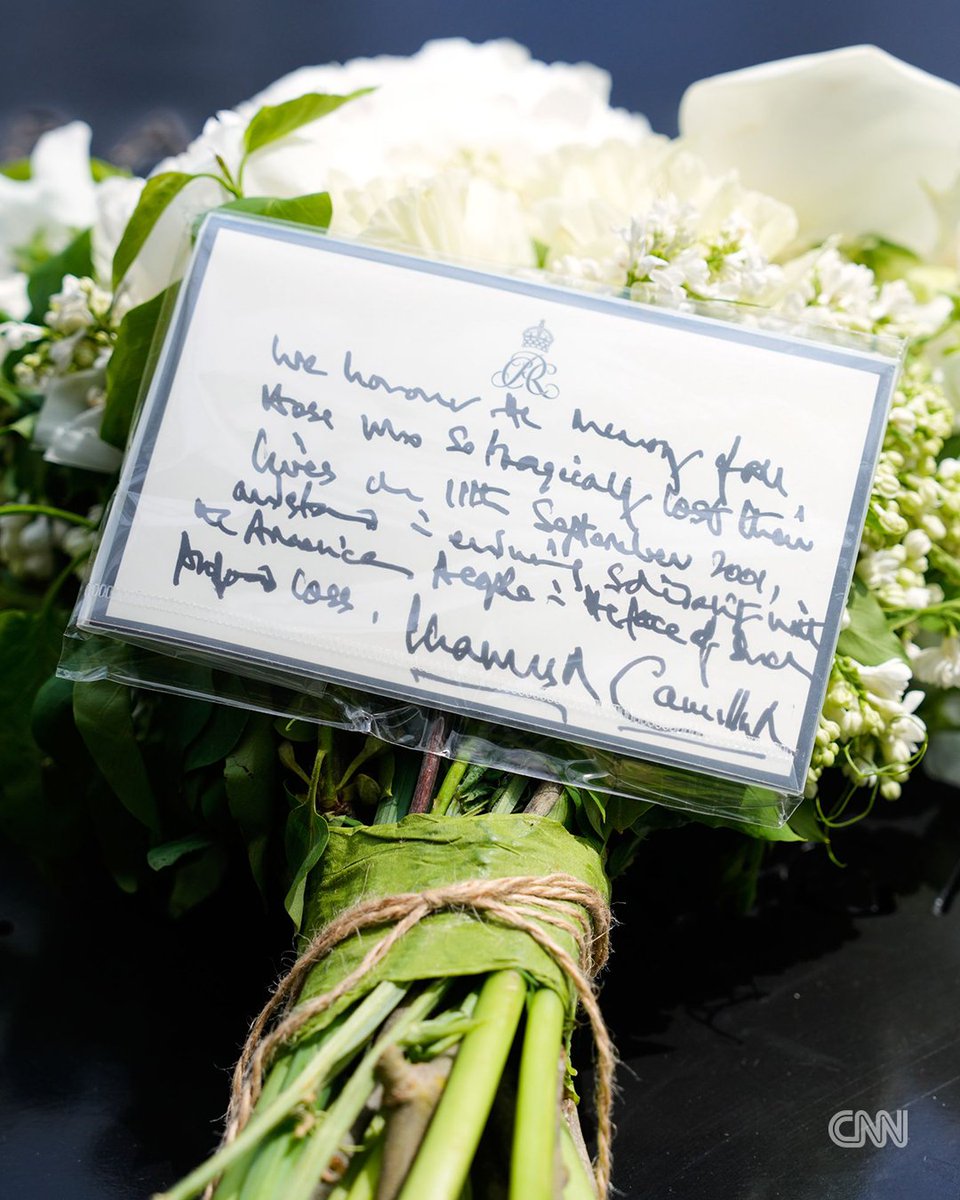 We honour the memory of all
those who so tragically lost their
lives on 11th September 2001,
and stand in enduring solidarity with
the American People in the face of such
profound loss.
Charles R Camilla R
CNN